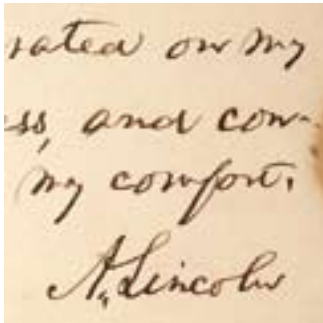 rated on my
ss, and con-
my comfort.
A. Lincoln